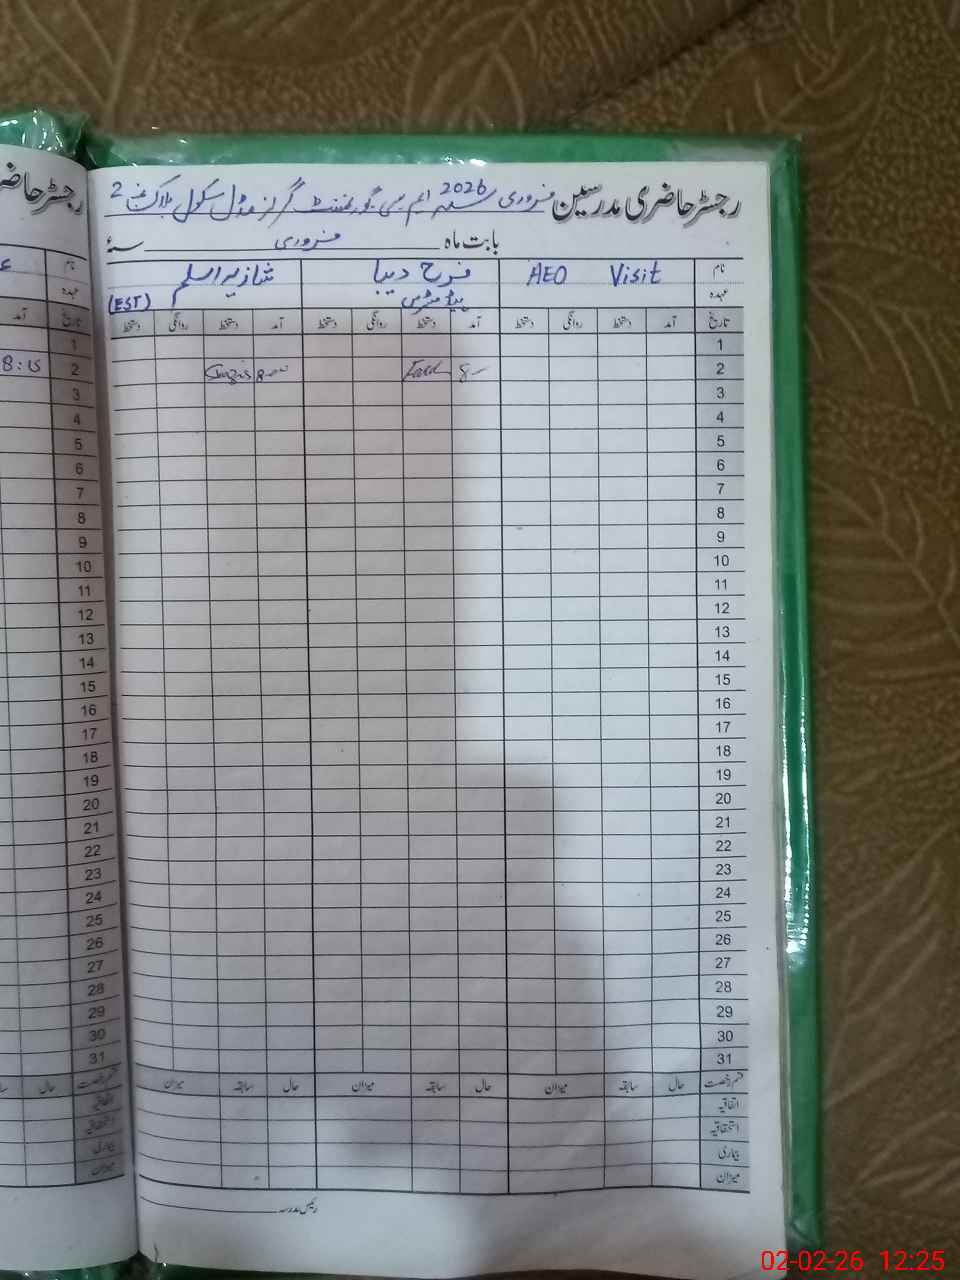 رجسٹر حاضری مدرسین فروری 2026 ایم سی گورنمنٹ گرلز مڈل سکول بلاک نمبر 2
بابت ماہ فروری سنۂ
نام AEO Visit فرح دیبا شازیہ اسلم
عہدہ ہیڈ مسٹریس (EST)
تاریخ آمد دستخط روانگی دستخط آمد دستخط روانگی دستخط آمد دستخط روانگی دستخط
1
2 8 8-00
3
4
5
6
7
8
9
10
11
12
13
14
15
16
17
18
19
20
21
22
23
24
25
26
27
28
29
30
31
قسم رخصت حال سابقہ میزان حال سابقہ میزان حال سابقہ میزان
اتفاقیہ
استحقاقیہ
بیماری
میزان
رئیس مدرسہ
رجسٹر حاضر
نام
عہدہ
تاریخ آمد
1
2 8:15
3
4
5
6
7
8
9
10
11
12
13
14
15
16
17
18
19
20
21
22
23
24
25
26
27
28
29
30
31
قسم رخصت حال
اتفاقیہ
استحقاقیہ
بیماری
میزان
02-02-26 12:25